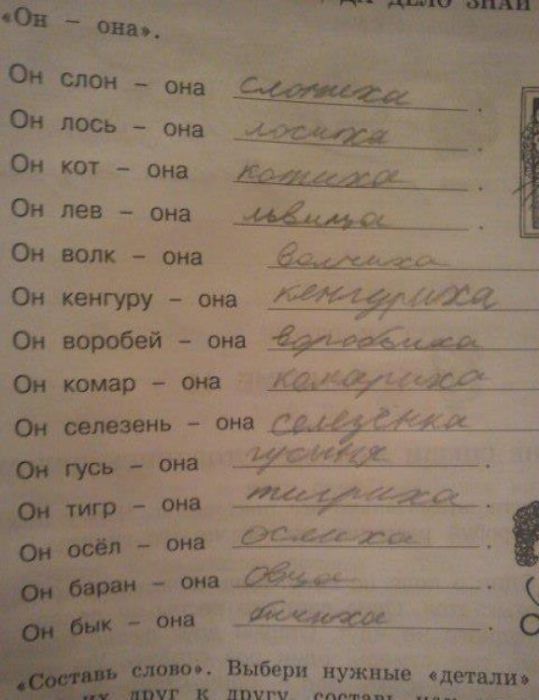 ДА ДЕЛО ЗНАЙ
«Он – она».
Он слон – она слониха.
Он лось – она лосиха.
Он кот – она котиха.
Он лев – она львица.
Он волк – она волчиха
Он кенгуру – она кенгуриха
Он воробей – она воробьиха
Он комар – она комариха
Он селезень – она селезёнка
Он гусь – она гусыня.
Он тигр – она тигриха.
Он осёл – она ослиха.
Он баран – она овца.
Он бык – она бычиха.
«Составь слово». Выбери нужные «детали»
их друг к другу, составь